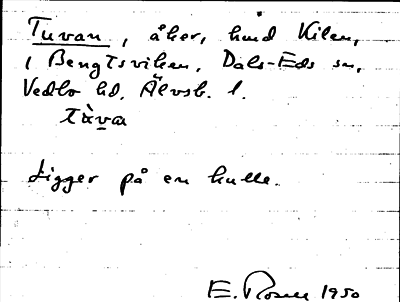 Tuvan, åker, hmd Kilen,
i Bengtsviken. Dals-Eds sn,
Vedbo hd. Älvsb. l.
tàva
Ligger på en kulle.
E. Rosell 1950